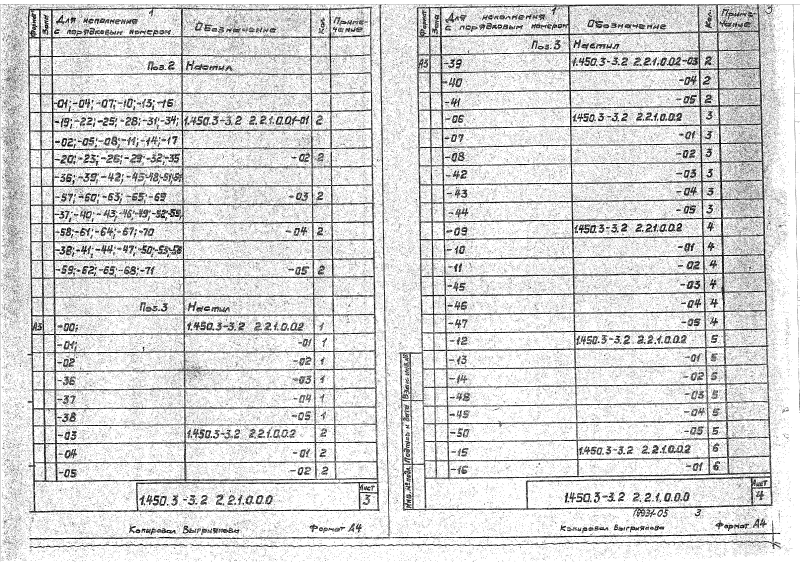 Формат
Зона
Для исполнения с порядковым номером
Обозначение
Кол.
Приме-
чание
Поз.2 Настил
-01;-04;-07;-10;-13;-16
-19;-22;-25;-28;-31;-34; 1.450.3-3.2 2.2.1.0.0.1-01 2
-02;-05;-08;-11;-14;-17
-20;-23;-26;-29;-32;-35 -02 2
-36;-39;-42;-45;-48;-51;-54
-57;-60;-63;-65;-69 -03 2
-37;-40;-43;-46;-49;-52;-55;
-58;-61;-64;-67;-70 -04 2
-38;-41;-44;-47;-50;-53;-56
-59;-62;-65;-68;-71 -05 2
Поз.3 Настил
А3 -00; 1.450.3-3.2 2.2.1.0.0.2 1
-01; -01 1
-02 -02 1
-36 -03 1
-37 -04 1
-38 -05 1
-03 1.450.3-3.2 2.2.1.0.0.2 2
-04 -01 2
-05 -02 2
1.450.3-3.2 2.2.1.0.0.0
Лист
3
Копировал Выгриянова Формат А4
Формат
Зона
Для исполнения с порядковым номером
Обозначение
Кол.
Приме-
чание
3
Поз.3 Настил
А3 -39 1.450.3-3.2 2.2.1.0.0.2-03 2
-40 -04 2
-41 -05 2
-06 1.450.3-3.2 2.2.1.0.0.2 3
-07 -01 3
-08 -02 3
-42 -03 3
-43 -04 3
-44 -05 3
-09 1.450.3-3.2 2.2.1.0.0.2 4
-10 -01 4
-11 -02 4
-45 -03 4
-46 -04 4
-47 -05 4
-12 1.450.3-3.2 2.2.1.0.0.2 5
-13 -01 5
-14 -02 5
-48 -03 5
-49 -04 5
-50 -05 5
-15 1.450.3-3.2 2.2.1.0.0.2 6
-16 -01 6
Инв. №подл. Подпись и дата Взам.инв.№
1.450.3-3.2 2.2.1.0.0.0
Лист
4
3
Копировал Выгриянова Формат А4